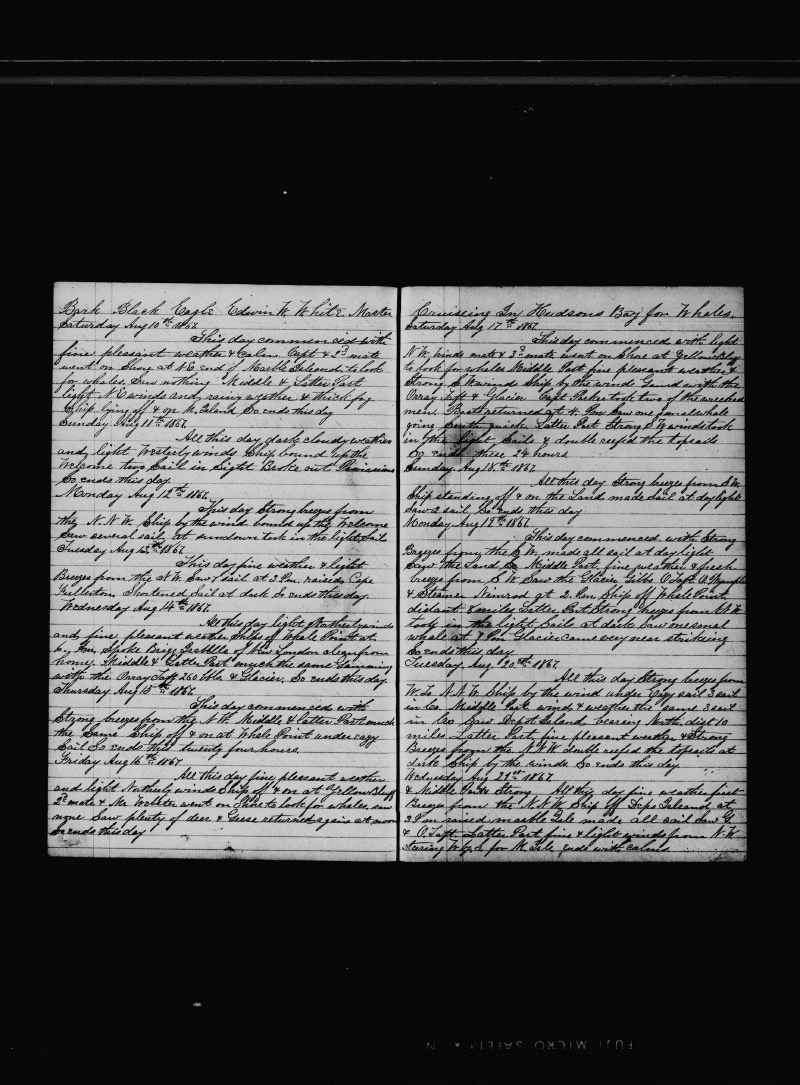 Bark Black Eagle Edwin W. White Master
Saturday Aug 10th 1867.
This day commenced with
fine pleasant weather & Calm Capt & 2d mate
went on Shore at N.E. end of Marble Island to look
for whales. Saw nothing Middle & Latter Part
light N.E. winds and rainy weather & thick fog.
Ship lying off & on M. Island So ends this day
Sunday Aug 11th 1867.
All this day dark cloudy weather
and light Westerly winds Ship bound up the
Welcome two Sail in Sight Broke out Provisions
So ends this day.
Monday Aug 12th 1867.
This day Strong breezes from
the N.N.W. Ship by the wind bound up the Welcome
Saw several sail, at sundown took in the light sail
Tuesday Aug 13th 1867.
This day fine weather & light
Breezes from the N.W. Saw 7 sail at 3 P.m. raised Cape
Fullerton Shortened Sail at dark So ends this day.
Wednesday Aug 14th 1867.
All this day light Northerly winds
and fine pleasant weather Ship off Whale Point at
Spoke Brigg Isabella of New London clean from
home, Middle & Latter Part much the same Gamming
with the Orray Taft 260 bbls & Glacier, So ends this day.
Thursday Aug 15th 1867.
This day commenced with
Strong breezes from the N.W. Middle & Latter Part much
the Same Ship off & on at Whale Point under easy
Sail So ends this twenty four hours.
Friday Aug 16th 1867
All this day fine pleasant weather
and light Northerly winds Ship off & on at Yellow Bluff
2d mate & Mr Webster went on Shore to look for whales, saw
none Saw plenty of deer & Geese returned again at noon
So ends this day
Cruiseing In Hudsons Bay for Whales.
Saturday Aug 17th 1867.
This day commenced with light
N.W. winds mate & 3d mate went on Shore at Yellow Bluff
to look for whales Middle Part fine pleasant weather &
Strong S.W. winds Ship by the wind with the
Orray Taft & Glacier Capt took two of the wrecked
men Boat returned at 4 P.m Saw one whale
going South quick Latter Part Strong S.W. winds took
in the light Sails & double reef'd the topsails
So ends these 24 hours
Sunday Aug 18th 1867.
All this day Strong breezes from S.W.
Ship standing off & on the Land made Sail at daylight
Saw 2 sail, So ends this day
Monday Aug 19th 1867.
This day commenced with Strong
Breezes from the S.W. made all sail at daylight
Saw the Land Middle Part fine weather & fresh
breezes from S.W. Saw the Glacier O. Taft A. Nymph
& Steamer Nimrod at 2. P.m. Ship off Whale Point
distant 8 miles Latter Part Strong breezes from
took in the light Sail at dark Saw one small
whale at 7 P.m Glacier came very near strikeing
So ends this day
Tuesday Aug. 20th 1867.
All this day Strong breezes from
W. to N.N.W. Ship by the wind under Easy sail 3 sail
in Co. Middle Part winds & weather the same 3 sail
in Co Saw Island bearing North dist 10
miles Latter Part fine pleasant weather & Strong
Breezes from the N.N.W double reef'd the topsails at
dark Ship by the wind So ends this day.
Wednesday Aug 21st 1867
& Middle Part Strong All this day fine weather first
Breezes from the N.N.W. Ship off Island at
2 P.m raised marble Isle made all sail Saw G.
& O. Taft. Latter Part fine & light winds from N.W.
Steering for M. Isle ends with calms.
FUJI MICRO SAFETY ★ N